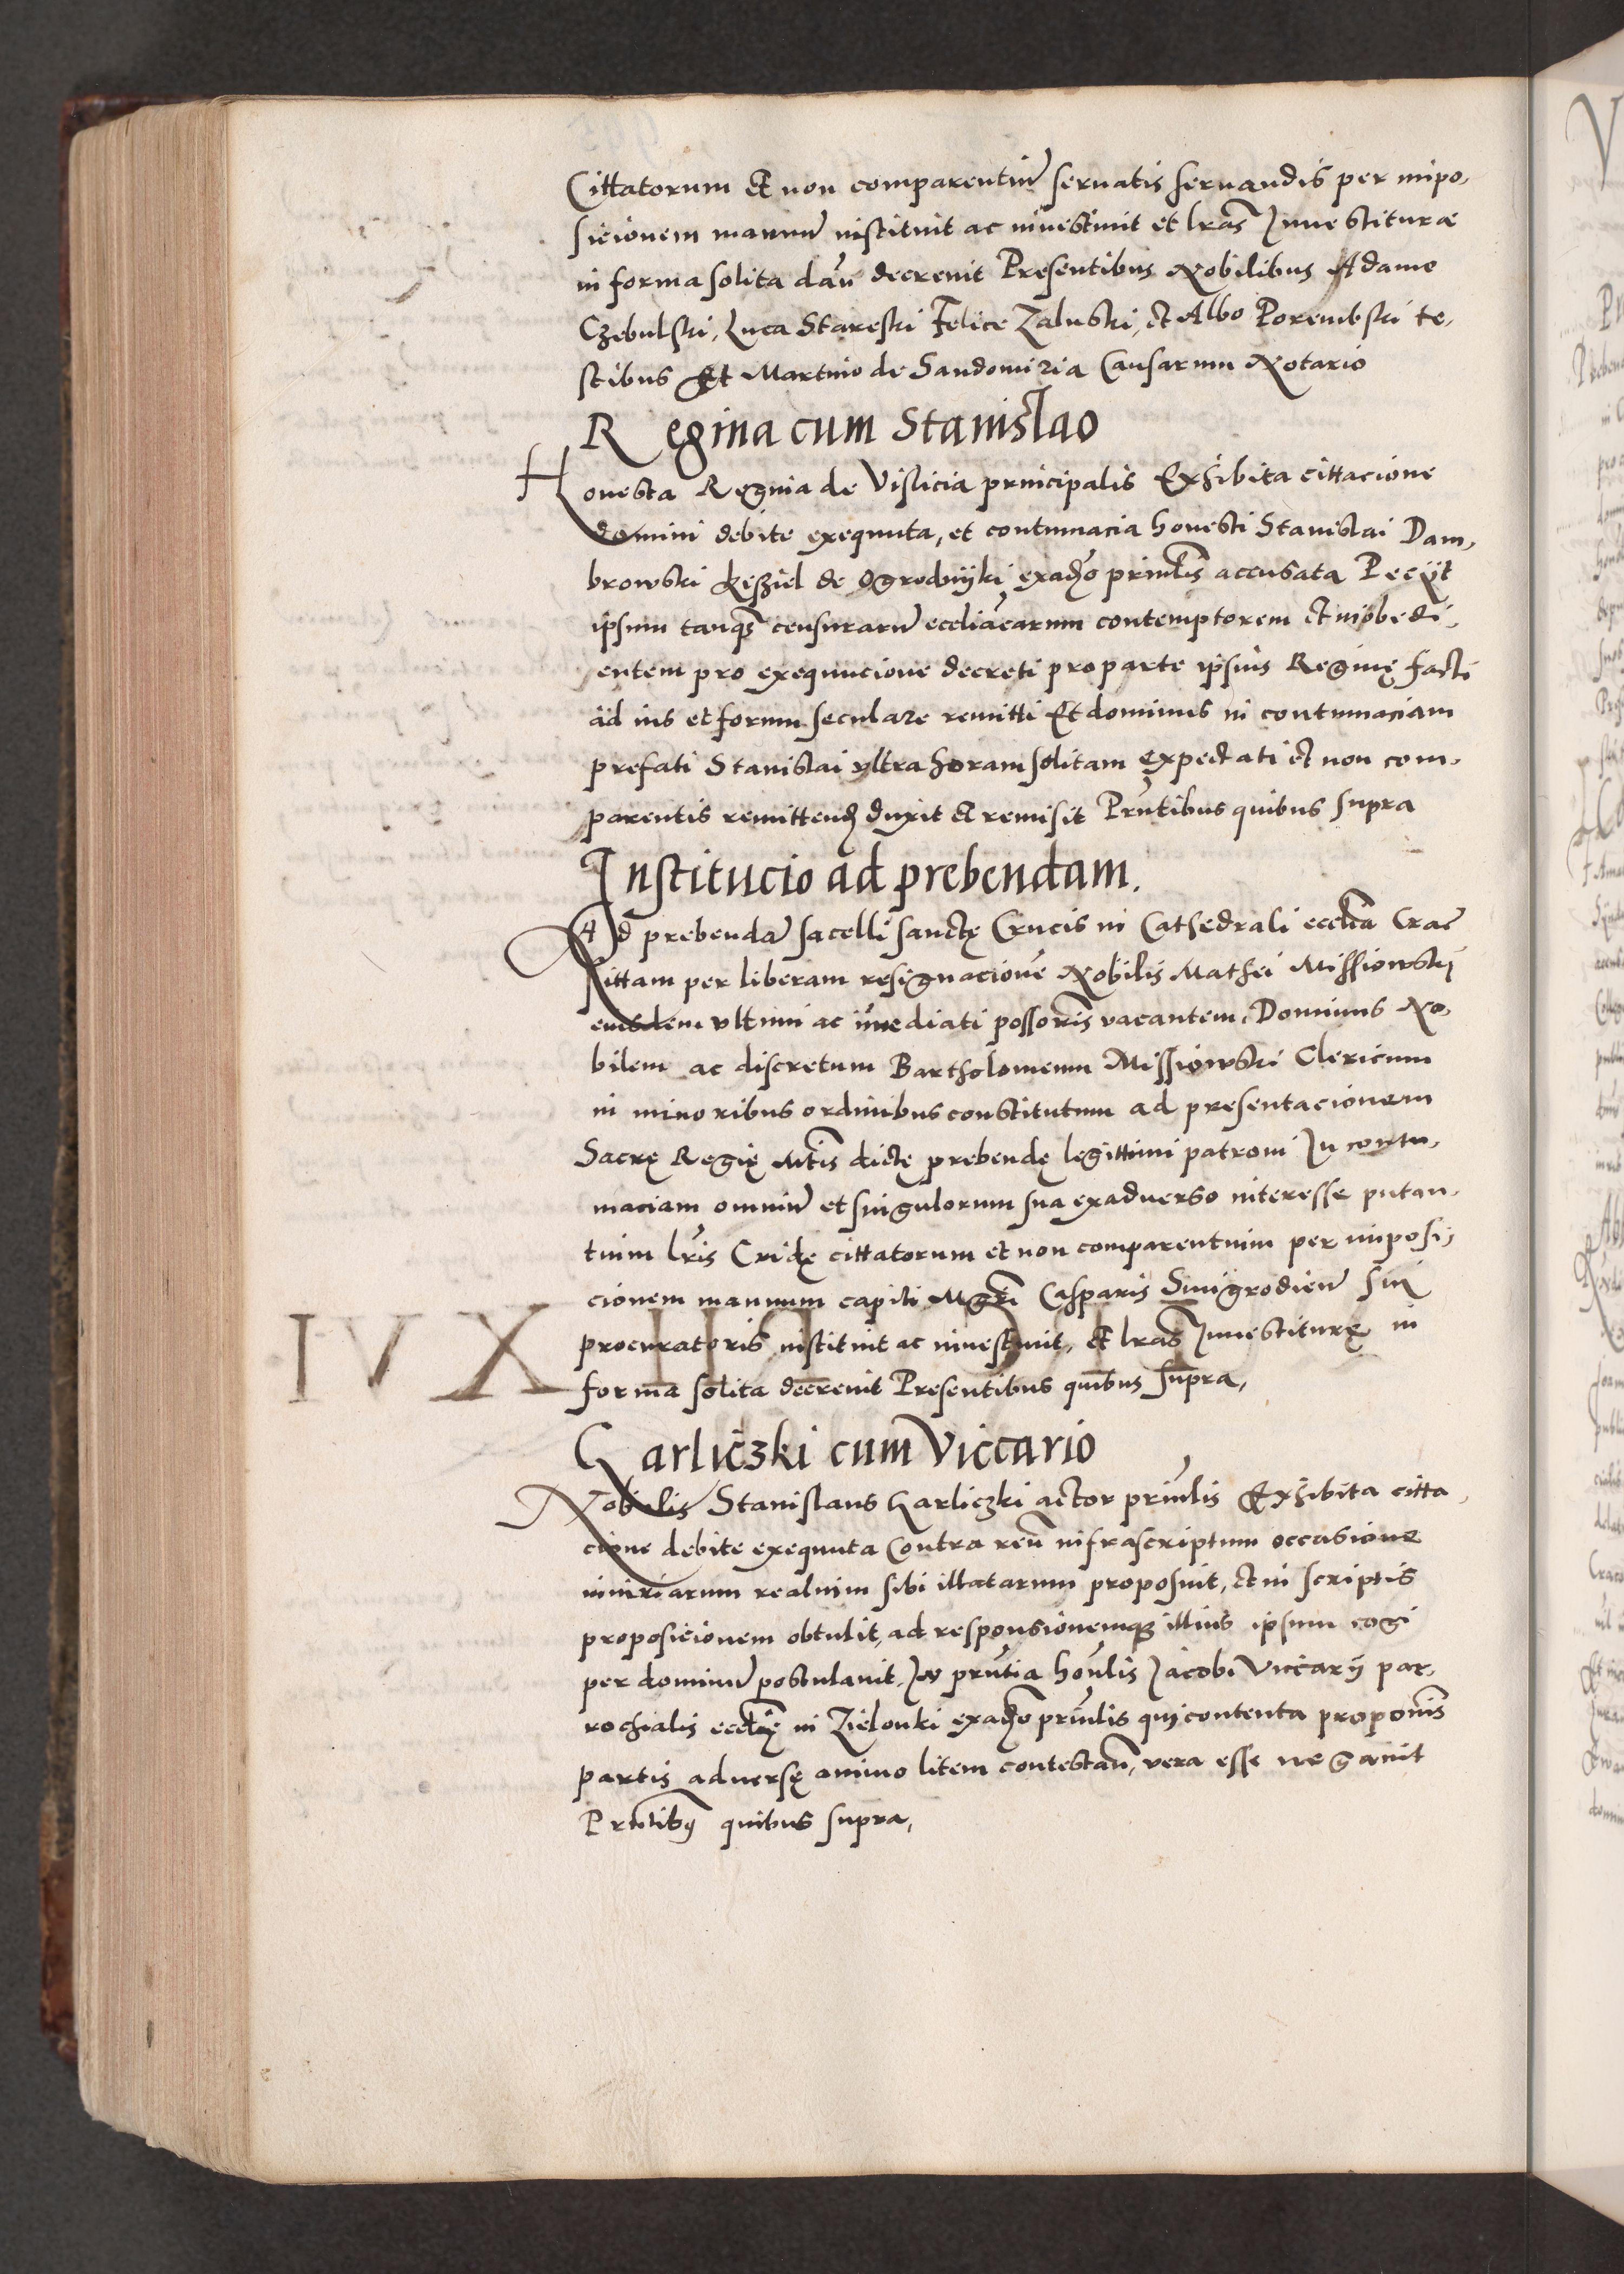 Cittatorum et non comparentiu͂ seruatis seruandis per impo,
sicionem manuu͂ instituit ac inuestiuit et lr͂as Inuestituræ
in forma solita dan͂ decreuit Presentibus Nobilibus Adamo
Czebulski, Luca Stareski Felice Zaluski, et Albo Porembski te,
stibus Et Martino de Sandomiria Causarum Notario
Regina cum Stanislao
Honesta Regina de Vislicia principalis Exhibita cittacione
domini debite exequuta, et contumacia honesti Stanislai Dam,
browski Kęsziel de Ogrodnijki exad͂o prin͂lis accusata Pecijt
ipsum tanq͂ censuraru͂ eccliac͂arum contemptorem et inobedi,
entem pro exequucione decreti pro parte ipsius Reginę facti
ad ius et forum seculare remitti Et dominus in contumaciam
prefati Stanislai vltra horam solitam expectati et non com,
parentis remittend͂ duxit et remisit Prn͂tibus quibus supra
Institucio ad prebendam.
Ad prebenda͂ sacelli sanctę Crucis in Cathedrali eccl͂ia Crac͂
sittam per liberam resignacione͂ Nobilis Mathei Missiowski
eiusdem vltimi ac im͂ediati possor͂is vacantem. Dominus No,
bilem ac discretum Bartholomeum Missiowski Clericum
in minoribus ordinibus constitutum ad presentacionem
Sacrę Regię Mt͂is dictę prebendę legittimi patroni In contu,
maciam omniu͂ et singulorum sua exaduerso interesse putan,
tium lr͂is Cridę cittatorum et non comparentium per imposi,
cionem manuum capiti Mgr͂i Casparis Smigrodien͂ sui
procuratoris instituit ac inuestiuit, et lr͂as Inuestiturę in
forma solita decreuit Presentibus quibus supra,
IVX
Garliczki cum Viccario
Nobilis Stanislaus Garliczki actor prin͂lis Exhibita citta,
cione debite exequuta Contra reu͂ infrascriptum occasione
iniuriarum realium sibi illatarum proposuit, et in scriptis
proposicionem obtulit, ad responsionemq͂ illius ipsum cogi
per dominu͂ postulauit, In prn͂tia hon͂lis Jacobi Viccarij par,
rochialis eccl͂ię in Zielonki exad͂o prin͂lis qui contenta proponis͂
partis aduersę animo litem contestan͂, vera esse negauit
Prn͂tibus quibus supra,